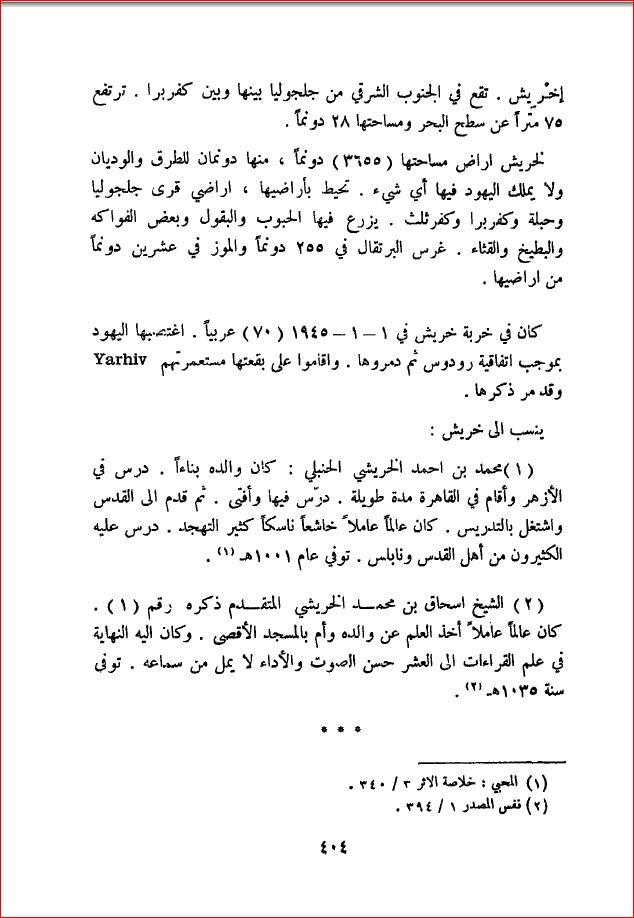 إخْرِيش . تقع في الجنوب الشرقي من جلجوليا بينها وبين كفربرا . ترتفع
٧٥ متراً عن سطح البحر ومساحتها ٢٨ دونماً .
لخريش اراض مساحتها ( ٣٦٥٥ ) دونماً ، منها دونمان للطرق والوديان
ولا يملك اليهود فيها أي شيء . تحيط بأراضيها ، اراضي قرى جلجوليا
وحبلة وكفربرا وكفرثلث . يزرع فيها الحبوب والبقول وبعض الفواكه
والبطيخ والقثاء . غرس البرتقال في ٢٥٥ دونماً والموز في عشرين دونماً
من اراضيها .
كان في خربة خريش في ١ – ١ – ١٩٤٥ ( ٧٠ ) عربياً . اغتصبها اليهود
بموجب اتفاقية رودوس ثم دمروها . واقاموا على بقعتها مستعمرتهم Yarhiv
وقد مر ذكرها .
ينسب الى خريش :
( ١ ) محمد بن احمد الخريشي الحنبلي : كان والده بناءاً . درس في
الأزهر وأقام في القاهرة مدة طويلة . درّس فيها وأفتى . ثم قدم الى القدس
واشتغل بالتدريس . كان عالماً عاملاً خاشعاً ناسكاً كثير التهجد . درس عليه
الكثيرون من أهل القدس ونابلس . توفي عام ١٠٠١هـ (١) .
( ٢ ) الشيخ اسحاق بن محمـد الخريشي المتقـدم ذكره رقم ( ١ ) .
كان عالماً عاملاً أخذ العلم عن والده وأم بالمسجد الأقصى . وكان اليه النهاية
في علم القراءات الى العشر حسن الصوت والأداء لا يمل من سماعه . توفى
سنة ١٠٣٥هـ (٢) .
* * *
(١) المحبي : خلاصة الاثر ٣ / ٣٤٠ .
(٢) نفس المصدر ١ / ٣٩٤ .
٤٠٤